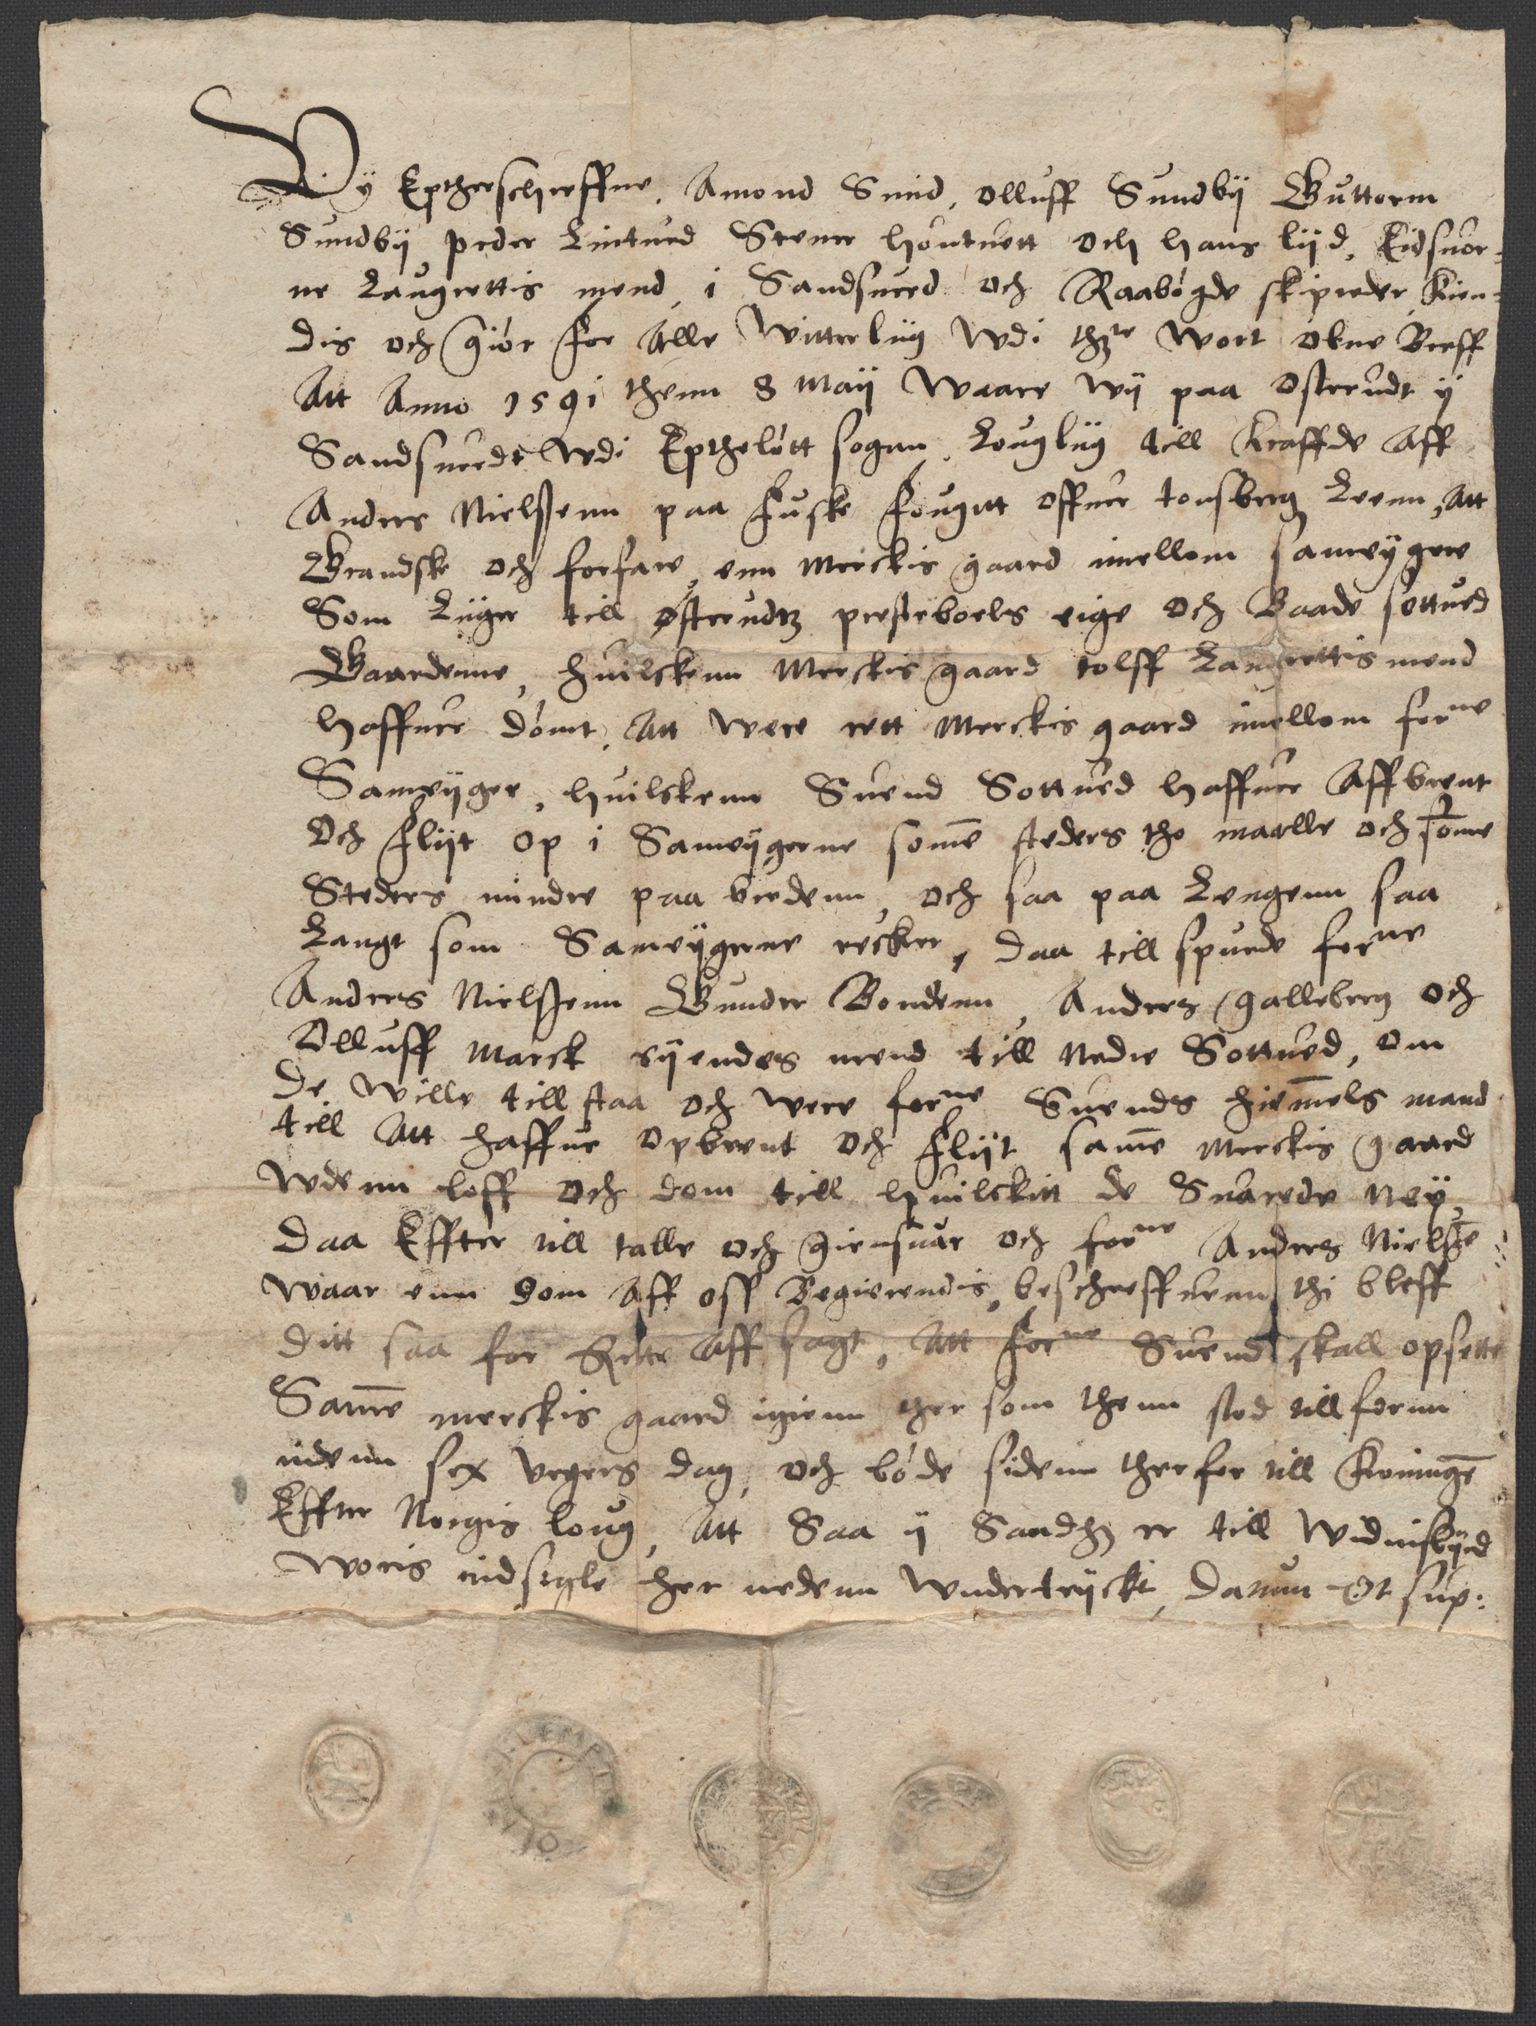 Wÿ Epther schreffne, Amond Smid, Olluff Sundbÿ Guttorm
Sundbÿ peder Lintued Stener houtuett och hans liid, Eidsuor-
ne Laugrettis mend, i Sandsuerd och Raabögde skipreder Kien-
dis och giör for Alle Witterliig Wdi thette Wort obne Breff
Att Anno 1591 thenn 8 Maij Waare Wÿ paa Osterudt ÿ
Sandsuerdt Wdi Epthelött sogen, Louglig till Kraffde Aff
Anders Nielssenn paa Fuske Fougitt offuer tonsberg Leenn, Att
Grandske och forfare, enn Merckis gaard imellom sameÿgere
Som Liiger till østerudtz presteboels eige och Baade sottued
Gaardenne, huilckenn Merckis gaard tolff Laugrettis mend
haffuer dömt, Att were rett Merckis gaard imellom forne
Sameÿger, huilckenn Suend Sottued haffuer Aff brent
Och Flÿt op i Sameÿgerne some steders the maalle och some
Steders mindre paa bredenn, och saa paa Lengenn saa
Langt som Sameÿgerne recker, daa till spurde forne
Anders Nielssenn Gunder Bondenn, Anders galleberg och
Olluff Marck eÿendes mend till Nedre Sottued, om
De Wille till staa och were forne Suends hiemels mand
till Att haffue opbrent och Flÿt same Merckis gaard
Wdenn loff och dom till huilckitt de Suarede Neÿ
Daa Effter till talle och giensuar och forne Anders Nielsse
waar enn dom Aff oss Begierendis, beschreffuenn thi bleff
Ditt saa for Rette Aff sagt, Att forne Suend skall opsette
Same merckis gaard igienn ther som thenn stod till forun
indenn sex Vegers dag, och böde sidenn therfor till Koningen
Effter Norgis loug, Att Saa ÿ Sandhed er till Widnisbÿrd
Woris indsegle her nedenn Wndertrÿckt, Datum Vt sup: